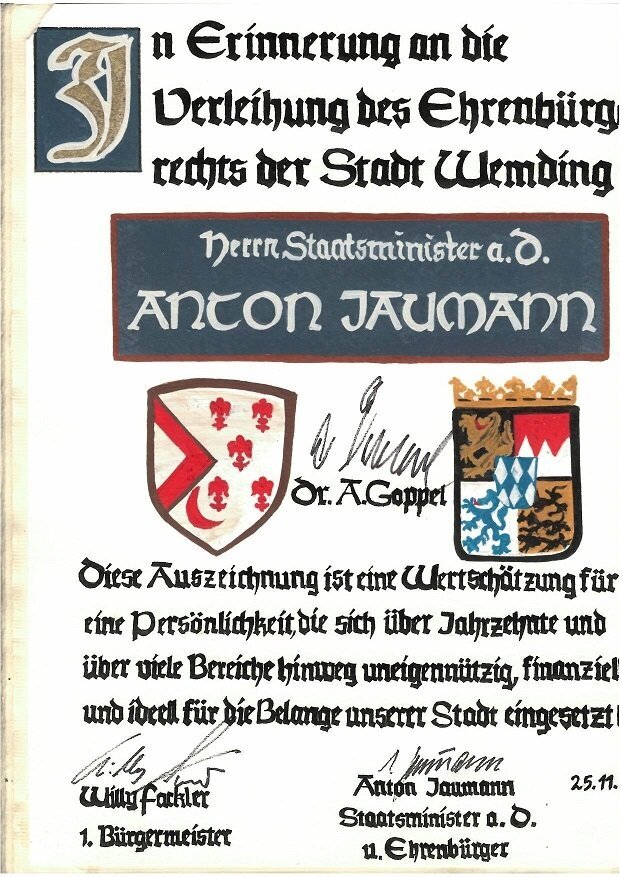 In Erinnerung an die
Verleihung des Ehrenbürge
rechts der Stadt Wemding
Herrn Staatsminister a.D.
ANTON JAUMANN
Dr. A. Goppel
Diese Auszeichnung ist eine Wertschätzung für
eine Persönlichkeit, die sich über Jahrzehnte und
über viele Bereiche hinweg uneigennützig, finanziell
und ideell für die Belange unserer Stadt eingesetzt
Willy Fackler
1. Bürgermeister
Anton Jaumann
Staatsminister a. D.
u. Ehrenbürger
25.11.